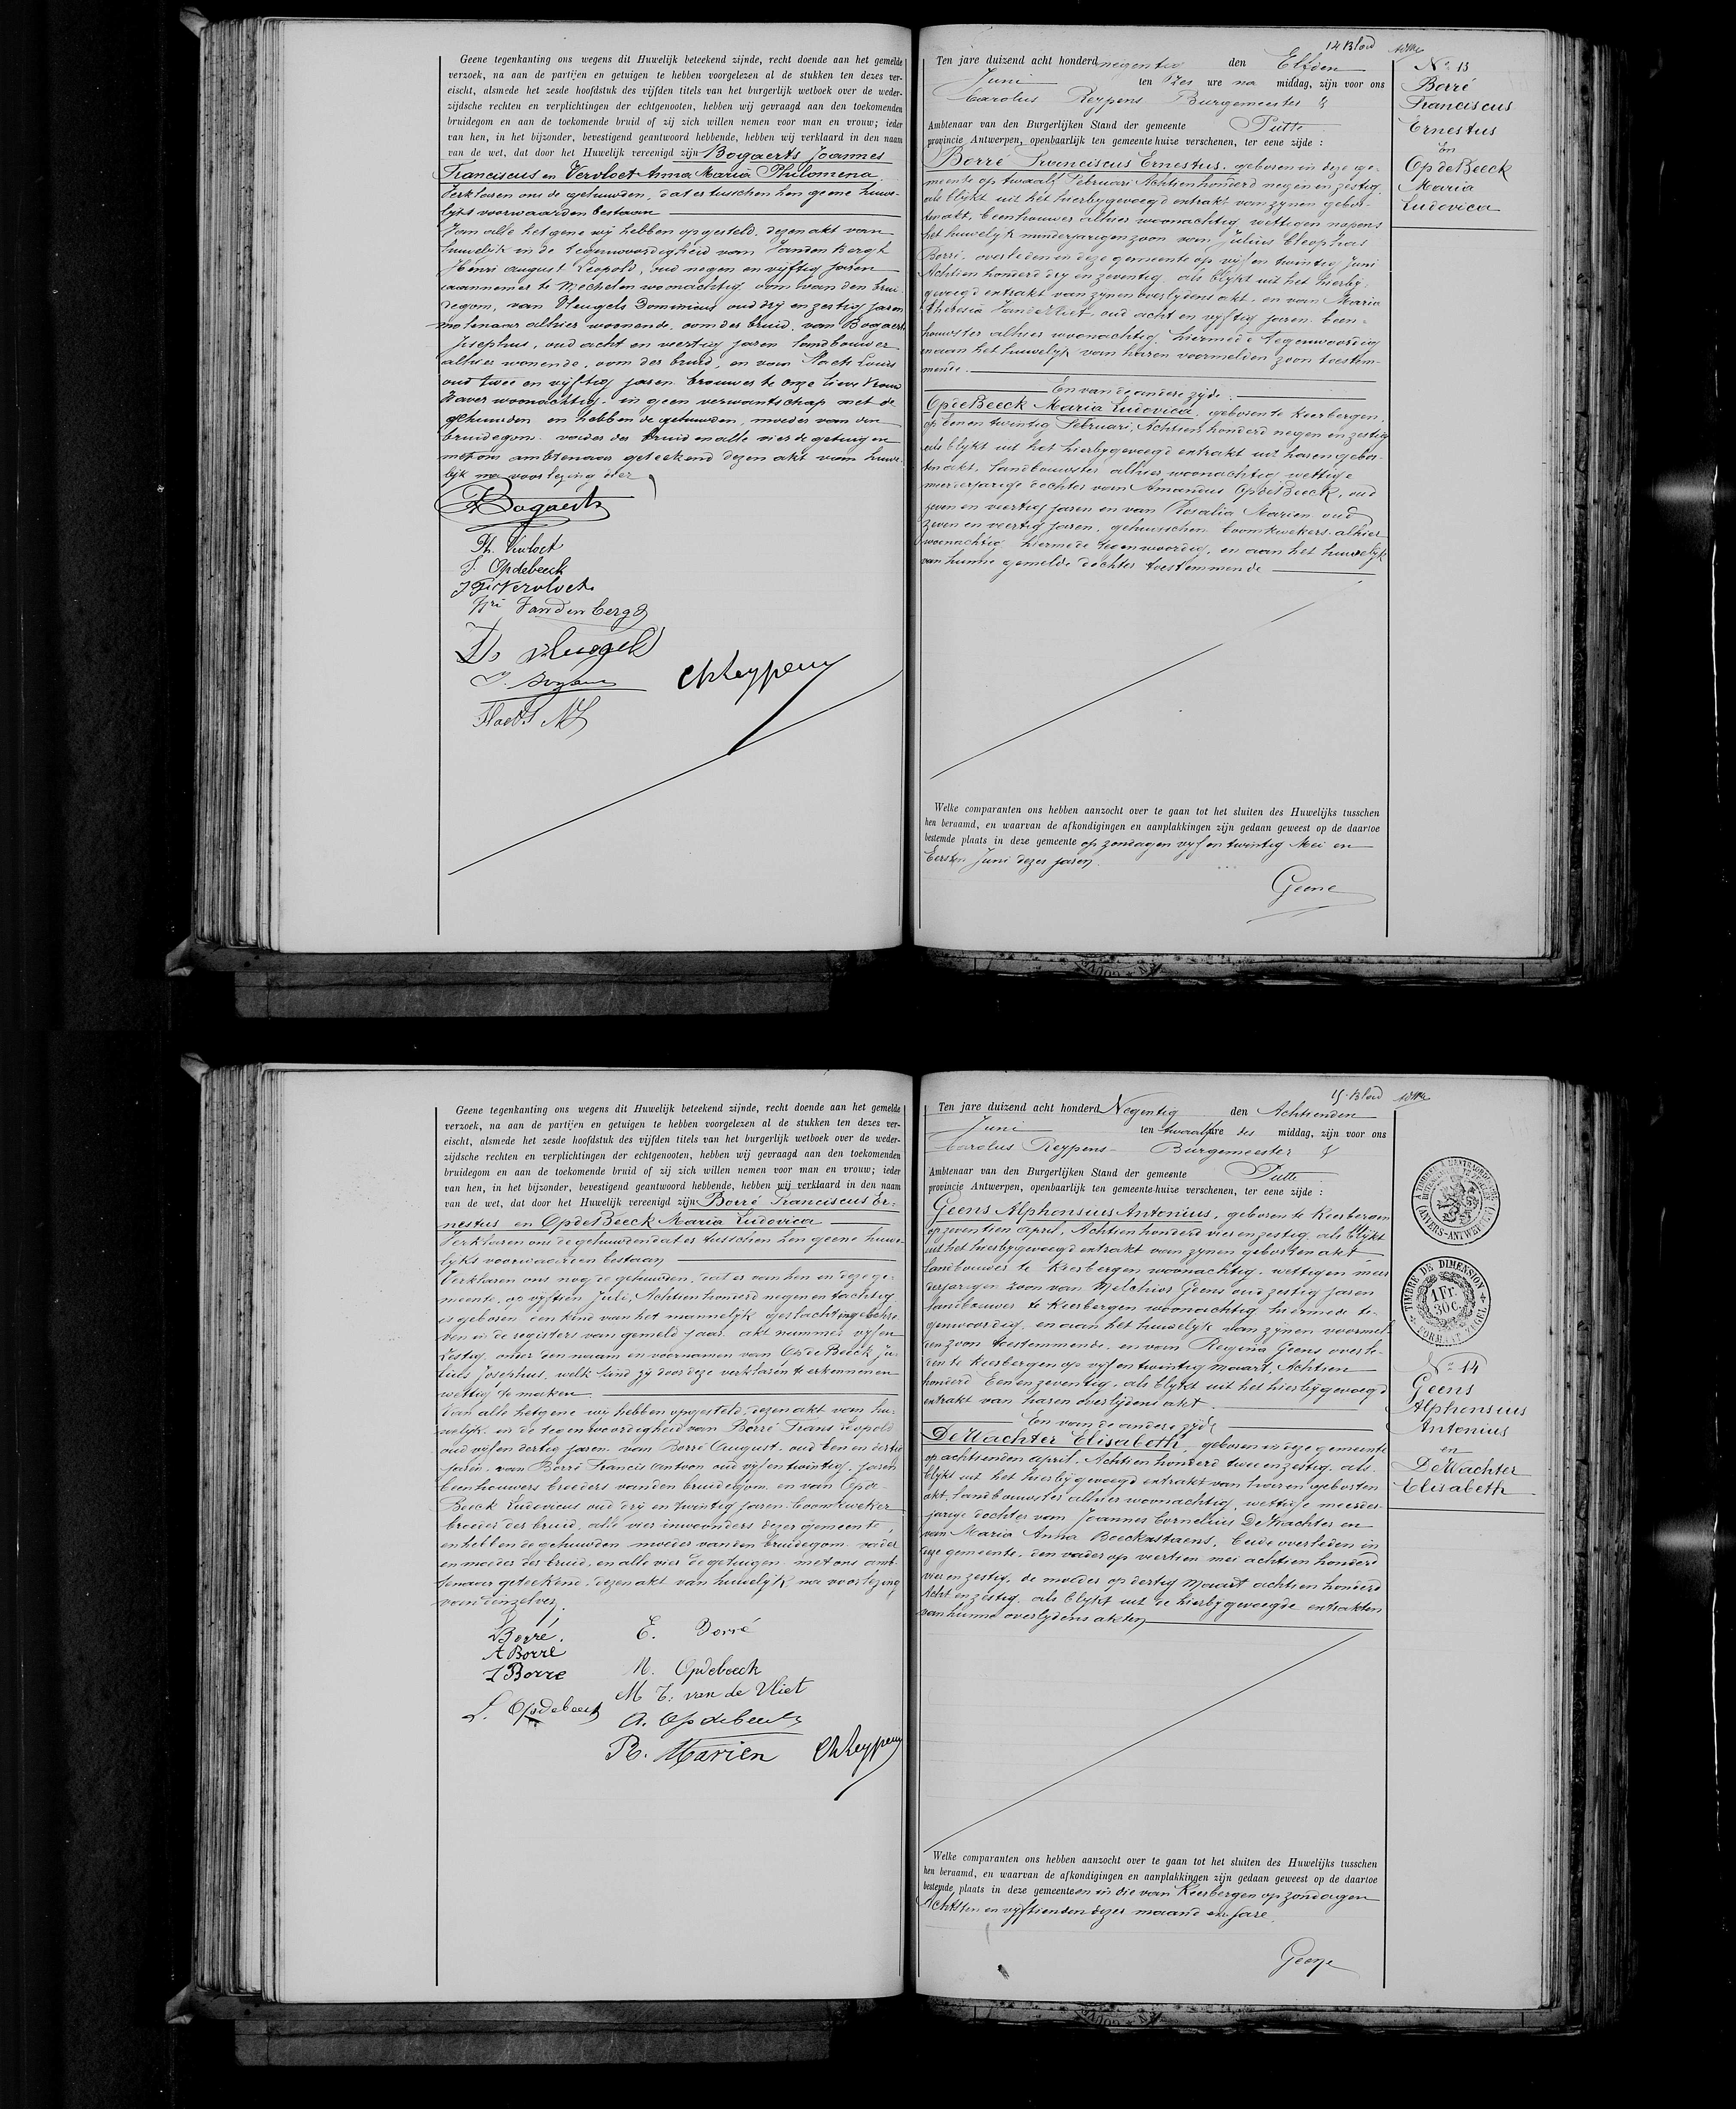 Geene tegenkanting ons wegens dit Huwelijk beteekend zijnde, recht doende aan het gemelde
verzoek, na aan de partijen en getuigen te hebben voorgelezen al de stukken ten dezes ver-
eischt, alsmede het zesde hoofdstuk des vijfden titels van het burgerlijk wetboek over de weder-
zijdsche rechten en verplichtingen der echtgenooten, hebben wij gevraagd aan den toekomenden
bruidegom en aan de toekomende bruid of zij zich willen nemen voor man en vrouw; ieder
van hen, in het bijzonder, bevestigend geantwoord hebbende, hebben wij verklaard in den naam
van de wet, dat door het Huwelijk vereenigd zijn Bogaerts Joannes
Franciscus en Vervloet Anna Maria Philomena
Verklaren ons de gehuwden, dat er tusschen hen geene huwe-
lijks voorwaarden bestaan
Van alle hetgene wij hebben opgesteld, dezen akt van
huwelijk in de tegenwoordigheid van Vanden Bergh
Henri August Leopold, oud negen en vijftig jaren
aannemer te Mechelen woonachtig, oom van den brui-
degom, van Vleugels Dominicus oud drij en zestig jaren
molenaar alhier woonende, oom der bruid, van Bogaerts
Josephus, oud acht en veertig jaren landbouwer
alhier wonende, oom der bruid, en van Louis
oud twee en vijftig jaren brouwer te Onze Lieve Vrouw
Waver woonachtig, in geen verwantschap met de
gehuwden en hebben de gehuwden, moeder van den
bruidegom, vader der bruid en alle vier de getuigen
met ons ambtenaar geteekend dezen akt van huwe-
lijk na voorlezing dier
Bogaerts
Ph. Vervloet
Opdebeeck
Vervloet
Hri Vandenbergh
Do Vleugels
J. Bogaerts
Ch Reypens
14 Blad
Ten jare duizend acht honderd negentig den Elfden
Juni ten Zes ure na middag, zijn voor ons
Carolus Reypens Burgemeester &
Ambtenaar van den Burgerlijken Stand der gemeente Putte
provincie Antwerpen, openbaarlijk ten gemeente-huize verschenen, ter eene zijde :
Borré Franciscus Ernestus, geboren in deze ge-
meente op twaalf Februari Achtien honderd negen en zestig,
als blijkt uit het hierbygevoegd extrakt van zynen gebor-
tenakt, beenhouwer alhier woonachtig, wettigen nopens
het huwelijk minderjarigen zoon van Julius Cleophas
Borré, overleden in deze gemeente op vijf en twintig Juni
Achtien honderd dry en zeventig, als blijkt uit het hierby-
gevoegd extrakt van zynen overlijdens akt, en van Maria
Theresia VandeVliet, oud acht en vijftig jaren, been-
houwster alhier woonachtig, hiermede tegenwoordig
en aan het huwelijk van haren voormelden zoon toestem-
mende.
En van de andere zijde :
OpdeBeeck Maria Ludovica, geboren te Keerbergen,
op Een en twintig Februari, Achtien honderd negen en zestig
als blijkt uit het hierbygevoegd extrakt uit haren gebor-
tenakt, landbouwster alhier woonachtig wettige
minderjarige dochter van Amandus OpdeBeeck, oud
zeven en veertig jaren en van Rosalia Marien oud
zeven en veertig jaren, gehuwschen boomkwekers alhier
woonachtig hiermede tegenwoordig, en aan het huwelijk
van hunne gemelde dochter toestemmende
Welke comparanten ons hebben aanzocht over te gaan tot het sluiten des Huwelijks tusschen
hen beraamd, en waarvan de afkondigingen en aanplakkingen zijn gedaan geweest op de daartoe
bestemde plaats in deze gemeente op zondagen vijf en twintig Mei en
Eersten Juni dezes jaren.
Geene
No 13
Borré
Franciscus
Ernestus
En
OpdeBeeck
Maria
Ludovica
Geene tegenkanting ons wegens dit Huwelijk beteekend zijnde, recht doende aan het gemelde
verzoek, na aan de partijen en getuigen te hebben voorgelezen al de stukken ten dezes ver-
eischt, alsmede het zesde hoofdstuk des vijfden titels van het burgerlijk wetboek over de weder-
zijdsche rechten en verplichtingen der echtgenooten, hebben wij gevraagd aan den toekomenden
bruidegom en aan de toekomende bruid of zij zich willen nemen voor man en vrouw; ieder
van hen, in het bijzonder, bevestigend geantwoord hebbende, hebben wij verklaard in den naam
van de wet, dat door het Huwelijk vereenigd zijn Borré Franciscus Er-
nestus en OpdeBeeck Maria Ludovica
Verklaren ons de gehuwden dat er tusschen hen geene huwe-
lijks voorwaarden bestaan
Verklaren ons nog de gehuwden, dat er van hen in deze ge-
meente, op vijftien Juli, Achtien honderd negen en tachtig
is geboren een kind van het mannelijk geslacht ingeschre-
ven in de registers van gemeld jaar akt nummer vijf en
zestig, onder den naam en voornamen van OpdeBeeck Ju-
lius Josephus, welk kind zij door deze verklaren te erkennen en
wettig te maken.
Van alle hetgene wij hebben opgesteld, dezen akt van hu-
welijk, in de tegenwoordigheid van Borré Frans Leopold
oud vijf en dertig jaren, van Borré August, oud Een en dertig
jaren, van Borré Francis Antoon oud vijf en twintig jaren
beenhouwers broeders van den bruidegom en van Opde-
Beeck Ludovicus oud drij en twintig jaren boomkweker
broeder der bruid, alle vier inwoonders dezer gemeente,
en hebben de gehuwden moeder van den bruidegom vader
en moeder der bruid, en alle vier de getuigen met ons amb-
tenaar geteekend, dezen akt van huwelijk na voorlezing
van denzelven
Borré.
A Borré
F Borre
L. Opdebeeck
E. Borré
M. Opdebeeck
M T. van de Vliet
A. Opdebeeck
R. Marien
Ch Reypens
15 Blad
Ten jare duizend acht honderd Negentig den Achtienden
Juni ten twaalf ure des middag, zijn voor ons
Carolus Reypens Burgemeester &
Ambtenaar van den Burgerlijken Stand der gemeente Putte
provincie Antwerpen, openbaarlijk ten gemeente-huize verschenen, ter eene zijde :
Geens Alphonsius Antonius, geboren te Keerbergen
op zeventien april, Achtien honderd vier en zestig, als blijkt
uit het hierbygevoegd extrakt van zynen geborten akt
landbouwer te Keerbergen woonachtig, wettigen meer-
derjarigen zoon van Melchior Geens oud zestig jaren
landbouwer te Keerbergen woonachtig hiermede te-
genwoordig, en aan het huwelijk van zijnen voormel-
den zoon toestemmende, en van Regina Geens overle-
den te Keerbergen op vijf en twintig Maart, Achtien
honderd Een en zeventig, als blijkt uit het hierbijgevoegd
extrakt van haren overlijdens akt.
En van de andere zijde
DeWachter Elisabeth, geboren in deze gemeente
op achtienden april, Achtien honderd twee en zestig, als
blijkt uit het hierbijgevoegd extrakt van haren geborten
akt, landbouwster alhier woonachtig, wettige meerder-
jarige dochter van Joannes Cornelius DeWachter en
van Maria Anna Boeckstaens, beide overleden in
deze gemeente, den vader op veertien mei achtien honderd
vier en zestig, de moeder op dertig Maart achtien honderd
Acht en zestig, als blijkt uit de hierbijgevoegde extrakten
van hunne overlijdens akten
Welke comparanten ons hebben aanzocht over te gaan tot het sluiten des Huwelijks tusschen
hen beraamd, en waarvan de afkondigingen en aanplakkingen zijn gedaan geweest op de daartoe
bestemde plaats in deze gemeente en in die van Keerbergen op zondagen
Achtsten en vijftienden dezer maand en jare.
Geene
(ANVERS-ANTWERPEN)
TIMBRE DE DIMENSION
1 Fr.
30 c.
FORMAAT ZEGEL
No 14
Geens
Alphonsius
Antonius
en
DeWachter
Elisabeth